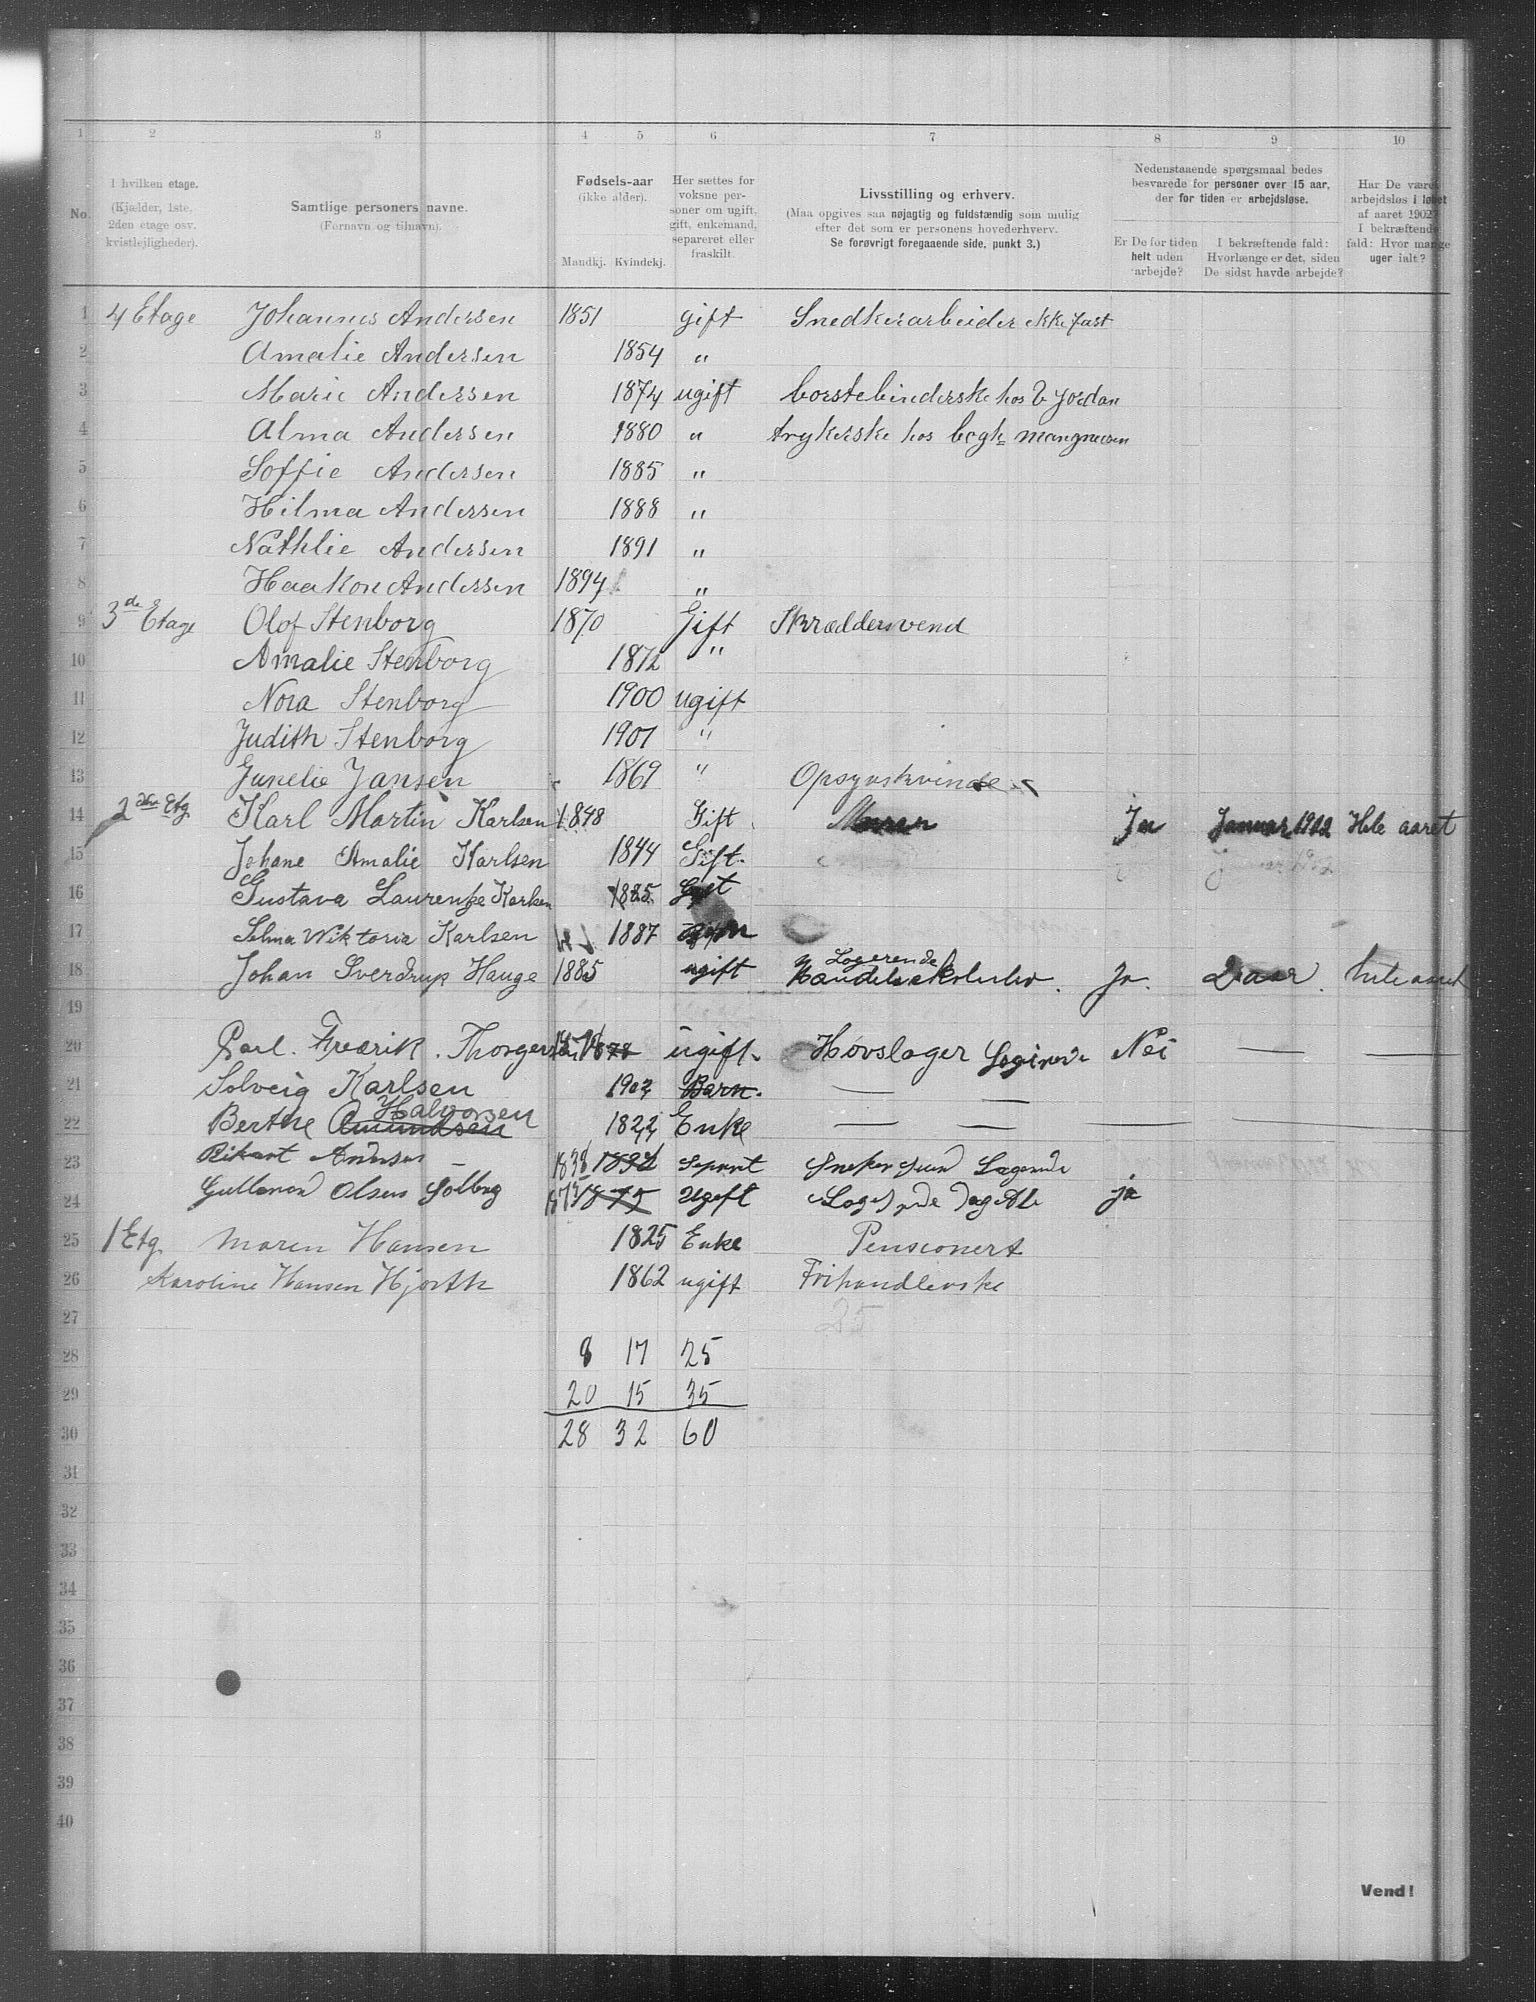 1 2 3 4 5 6 7 8 9 10
No.
I hvilken etage. (Kjælder, 1ste, 2den etage osv. kvistlejligheder).
Samtlige personers navne. (Fornavn og tilnavn).
Fødsels-aar (ikke alder). Mandkj. Kvindekj.
Her sættes for voksne personer om ugift, gift, enkemand, separeret eller fraskilt.
Livsstilling og erhverv. (Maa opgives saa nøjagtig og fuldstændig som mulig efter det som er personens hovederhverv. Se forøvrigt foregaaende side, punkt 3.)
Nedenstaaende spørgsmaal bedes besvarede for personer over 15 aar, der for tiden er arbejdsløse.
Er De for tiden helt uden arbejde?
I bekræftende fald: Hvorlænge er det, siden De sidst havde arbejde?
Har De været arbejdsløs i løbet af aaret 1902? I bekræftende fald: Hvor mange uger ialt?
1 4 Etage Johannes Andersen 1851 gift Snedkerarbeider ikke fast
2 Amalie Andersen 1854 "
3 Marie Andersen 1874 ugift borstebinderske hos Jordan
4 Alma Andersen 1880 " trykerske hos
5 Soffie Andersen 1885 "
6 Hilma Andersen 1888 "
7 Nathlie Andersen 1891 "
8 Haakon Andersen 1894 "
9 3de Etage Olof Stenborg 1870 Gift Skræddersvend
10 Amalie Stenborg 1872 "
11 Nora Stenborg 1900 ugift
12 Judith Stenborg 1901 "
13 Gunelie Jansen 1869 " Opsynskvinde
14 2den Etg Karl Martin Karlsen 1848 Gift Murer Ja Januar 1902 Hele aaret
15 Johane Amalie Karlsen 1844 Gift.
16 Gustava Laurentze Karlsen 1885
17 Selma Wiktoria Karlsen 1887
18 Johan Sverdrup Hauge 1885 ugift Logerende Handelsskoleelev. Ja. 2 aar. hele aaret
19
20 Carl. Fredrik. Thorgersen 1878 ugift. Hovslager Logerende Nei — —
21 Solveig Karlsen 1902 Barn. — —
22 Berthe Amundsen Halvorsen 1822 Enke — — — —
23 Rikart Andersen 1838 1832 Separt Logerende
24 Olsen Solberg 1875 1875 Ugeft ja
25 1 Etg. Maren Hansen 1825 Enke Pensionert
26 Karoline Hansen Hjorth 1862 ugift Frihandlerske
27 25
28 8 17 25
29 20 15 35
30 28 32 60
31
32
33
34
35
36
37
38
39
40
Vend!